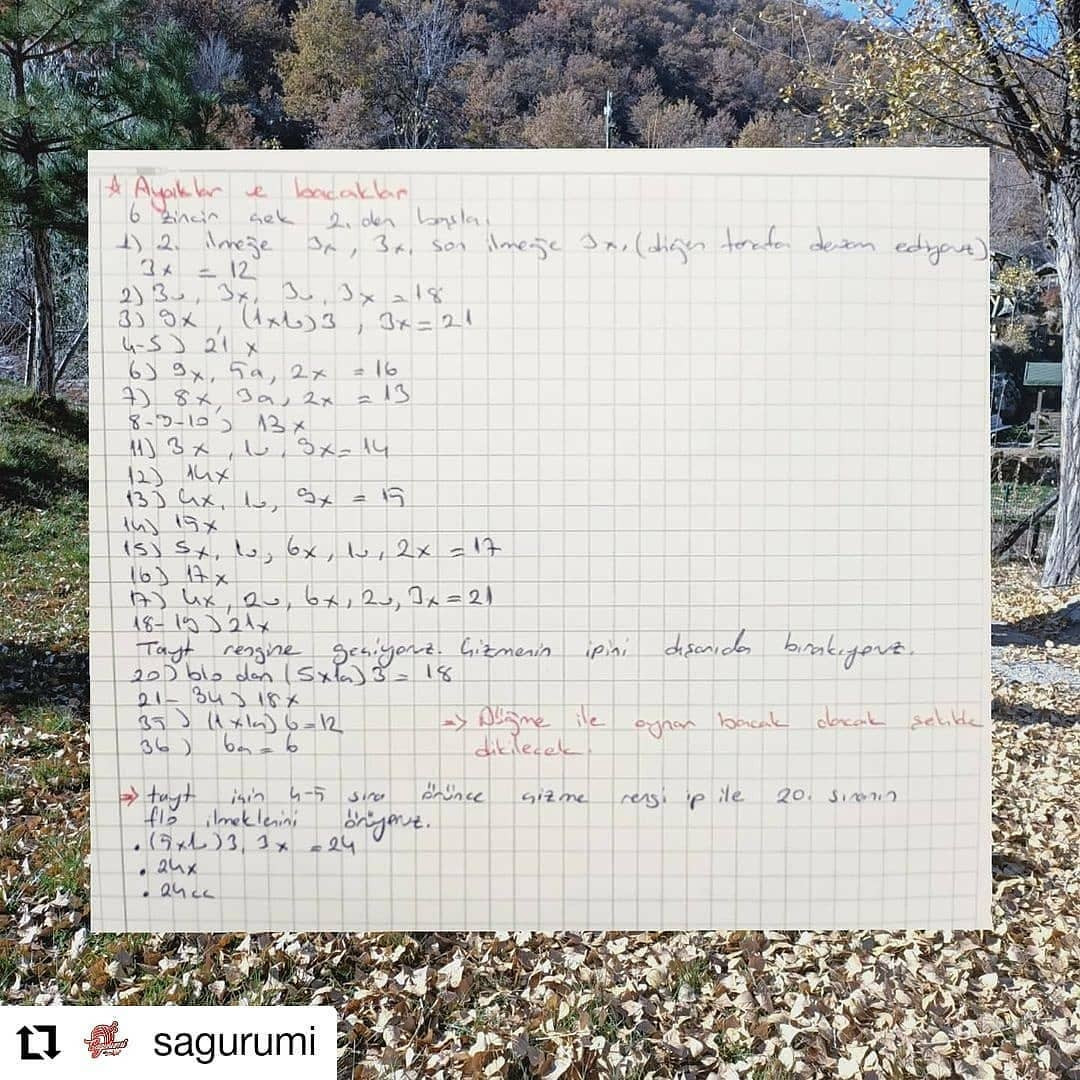 ☆ Ayaklar ve bacaklar
6 zincir çek 2. den başla.
1) 2. ilmeğe 3x, 3x, son ilmeğe 3x, (diğer tarafa devam ediyoruz)
3x = 12
2) 3v, 3x, 3v, 3x = 18
3) 9x, (1xv)3, 3x = 21
4-5) 21 x
6) 9x, 5a, 2x = 16
7) 8x, 3a, 2x = 13
8-9-10) 13x
11) 3x, 1v, 9x = 14
12) 14x
13) 4x, 1v, 9x = 15
14) 15x
15) 5x, 1v, 6x, 1v, 2x = 17
16) 17x
17) 4x, 2v, 6x, 2v, 3x = 21
18-19) 21x
Tayt rengine geçiyoruz. Çizmenin ipini dışarıda bırakıyoruz.
20) blo dan (5x1a)3 = 18
21-34) 18x
35) (1x1a)6 = 12 => Düğme ile oynar bacak olacak şekilde
36) 6a = 6 dikilecek.
=> tayt için 4-5 sıra örünce çizme rengi ip ile 20. sıranın
flo ilmeklerini örüyoruz.
. (5xv)3, 3x = 24
. 24x
. 24cc
sagurumi